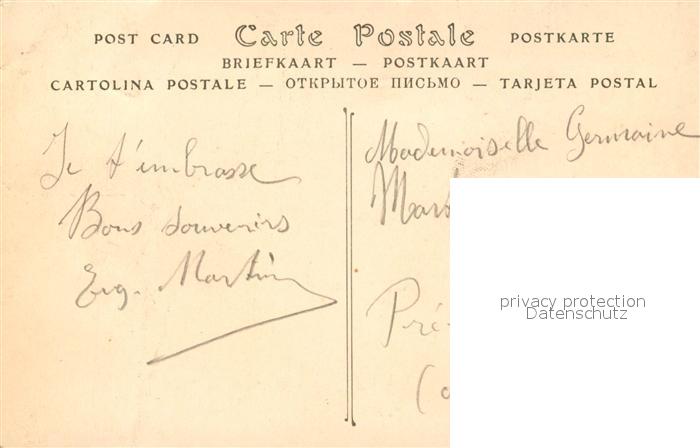 POST CARD Carte Postale POSTKARTE
BRIEFKAART — POSTKAART
CARTOLINA POSTALE — ОТКРЫТОЕ ПИСЬМО — TARJETA POSTAL
Je t'embrasse
Bons souvenirs
Eug. Martin
Mademoiselle Germaine
Mart
Pré-
(
privacy protection
Datenschutz